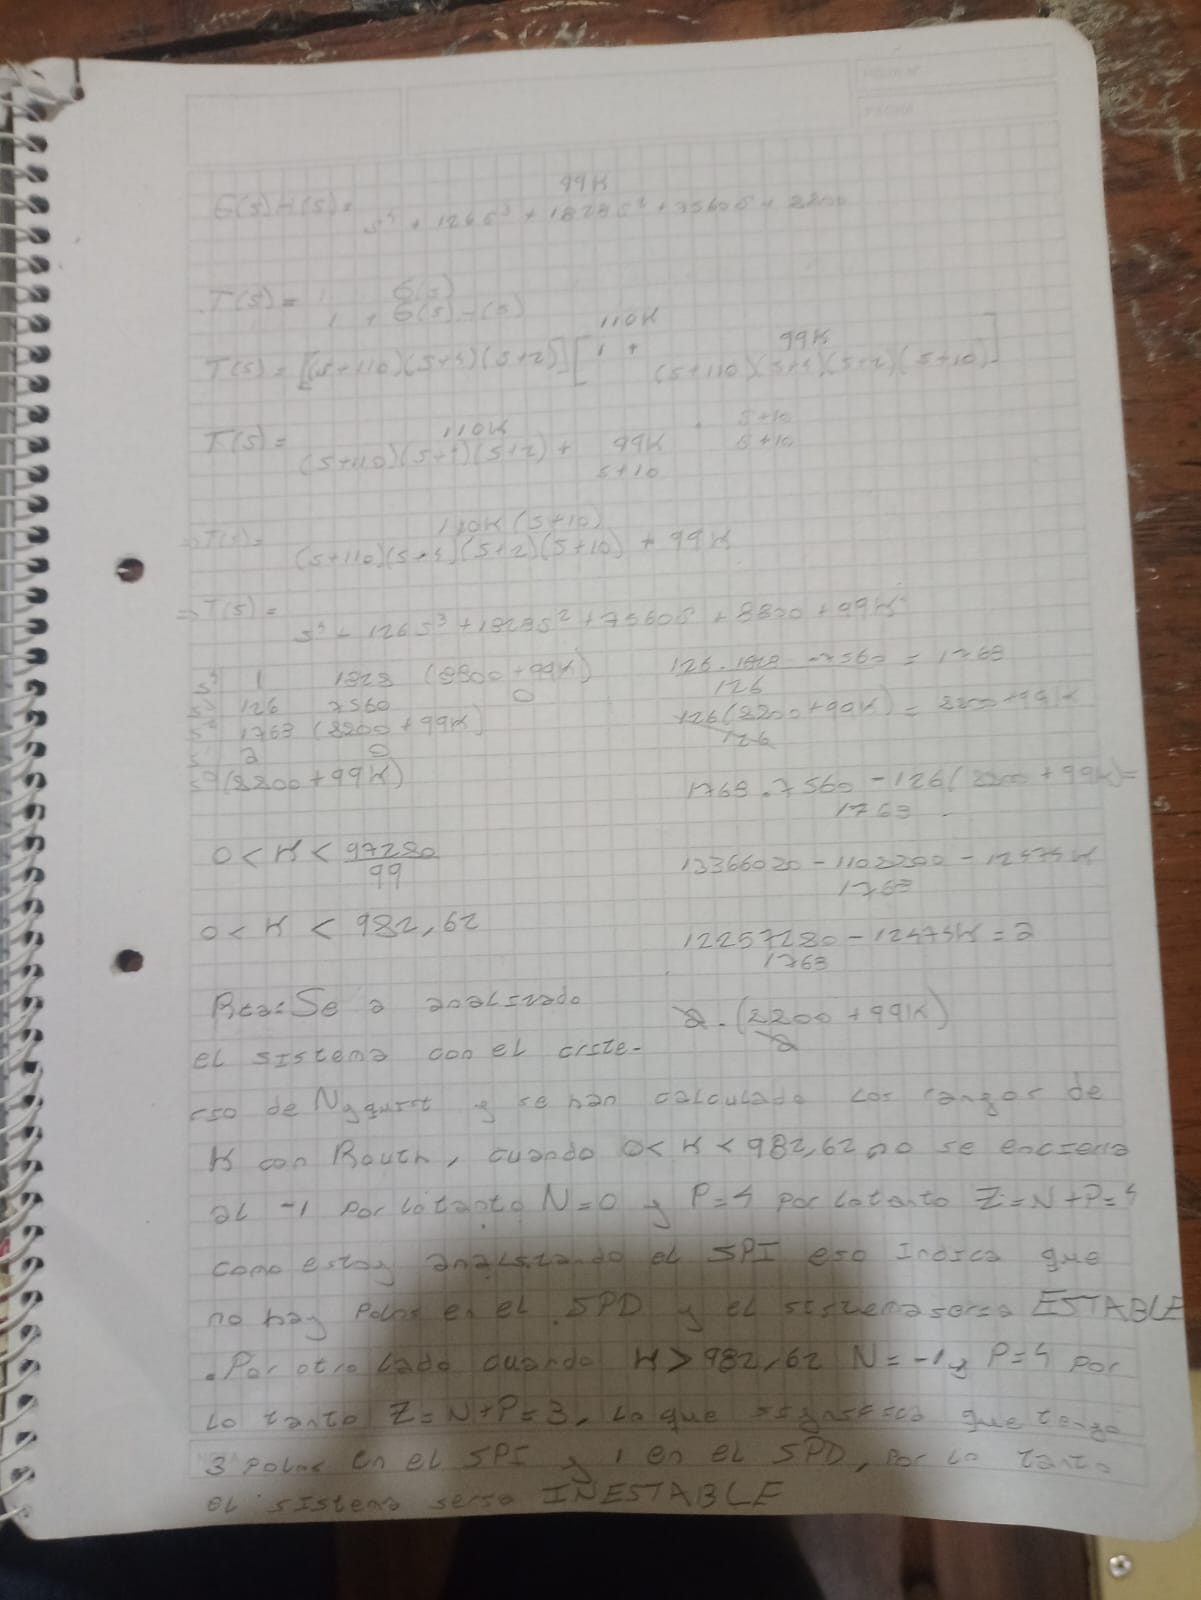 99K
G(s)H(s)= s⁴ + 126s³ + 1828s² + 7560s + 8800
T(s)= G(s)
1 + G(s)H(s)
T(s)= 110K
[(s+110)(s+4)(s+2)] [1 + 99K
(s+110)(s+4)(s+2)(s+10)]
T(s)= 110K . s+10
(s+110)(s+4)(s+2) + 99K s+10
s+10
⇒ T(s)= 110K (s+10)
(s+110)(s+4)(s+2)(s+10) + 99K
⇒ T(s)=
s⁴ + 126s³ + 1828s² + 7560s + 8800 + 99K
s⁴ 1 1828 (8800 + 99K)
s³ 126 7560 0
s² 1768 (8800 + 99K)
s¹ a 0
s⁰ (8800 + 99K)
126 . 1828 - 7560 = 1768
126
126(8800 + 99K) = 8800 + 99K
126
1768 . 7560 - 126(8800 + 99K) =
1768
- 12474K
1768
- 12474K = a
1768
a . (8800 + 99K)
a
0 < K < 97280
99
0 < K < 982,62
Rta: Se a analizado
el sistema con el crite-
rio de Nyquist y se han calculado los rangos de
K con Routh, cuando 0 < K < 982,62 no se encierra
al -1 por lo tanto N=0 y P=4 por lo tanto Z=N+P=4
como estoy analizando el SPI eso indica que
no hay polos en el SPD y el sistema seria ESTABLE
. Por otro lado cuando K > 982,62 N=-1 y P=4 por
lo tanto Z=N+P=3, lo que significa que tengo
3 polos en el SPI y 1 en el SPD, por lo tanto
el sistema seria INESTABLE